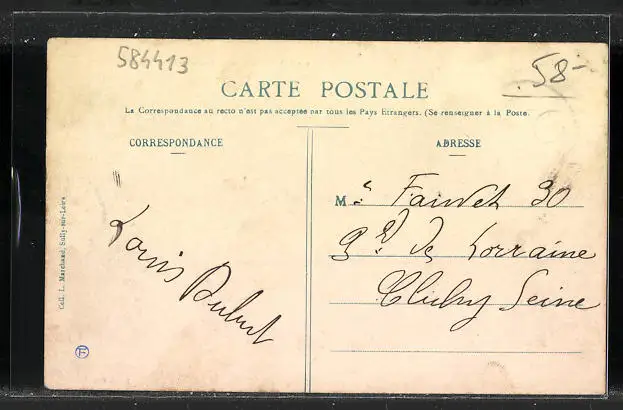 584413
.58-
CARTE POSTALE
La Correspondance au recto n'est pas acceptée par tous les Pays Etrangers. (Se renseigner à la Poste.
CORRESPONDANCE
ADRESSE
Louis
M 30
de Lorraine
Clichy Seine
Coll. L. Marchand, Sully-sur-Loire